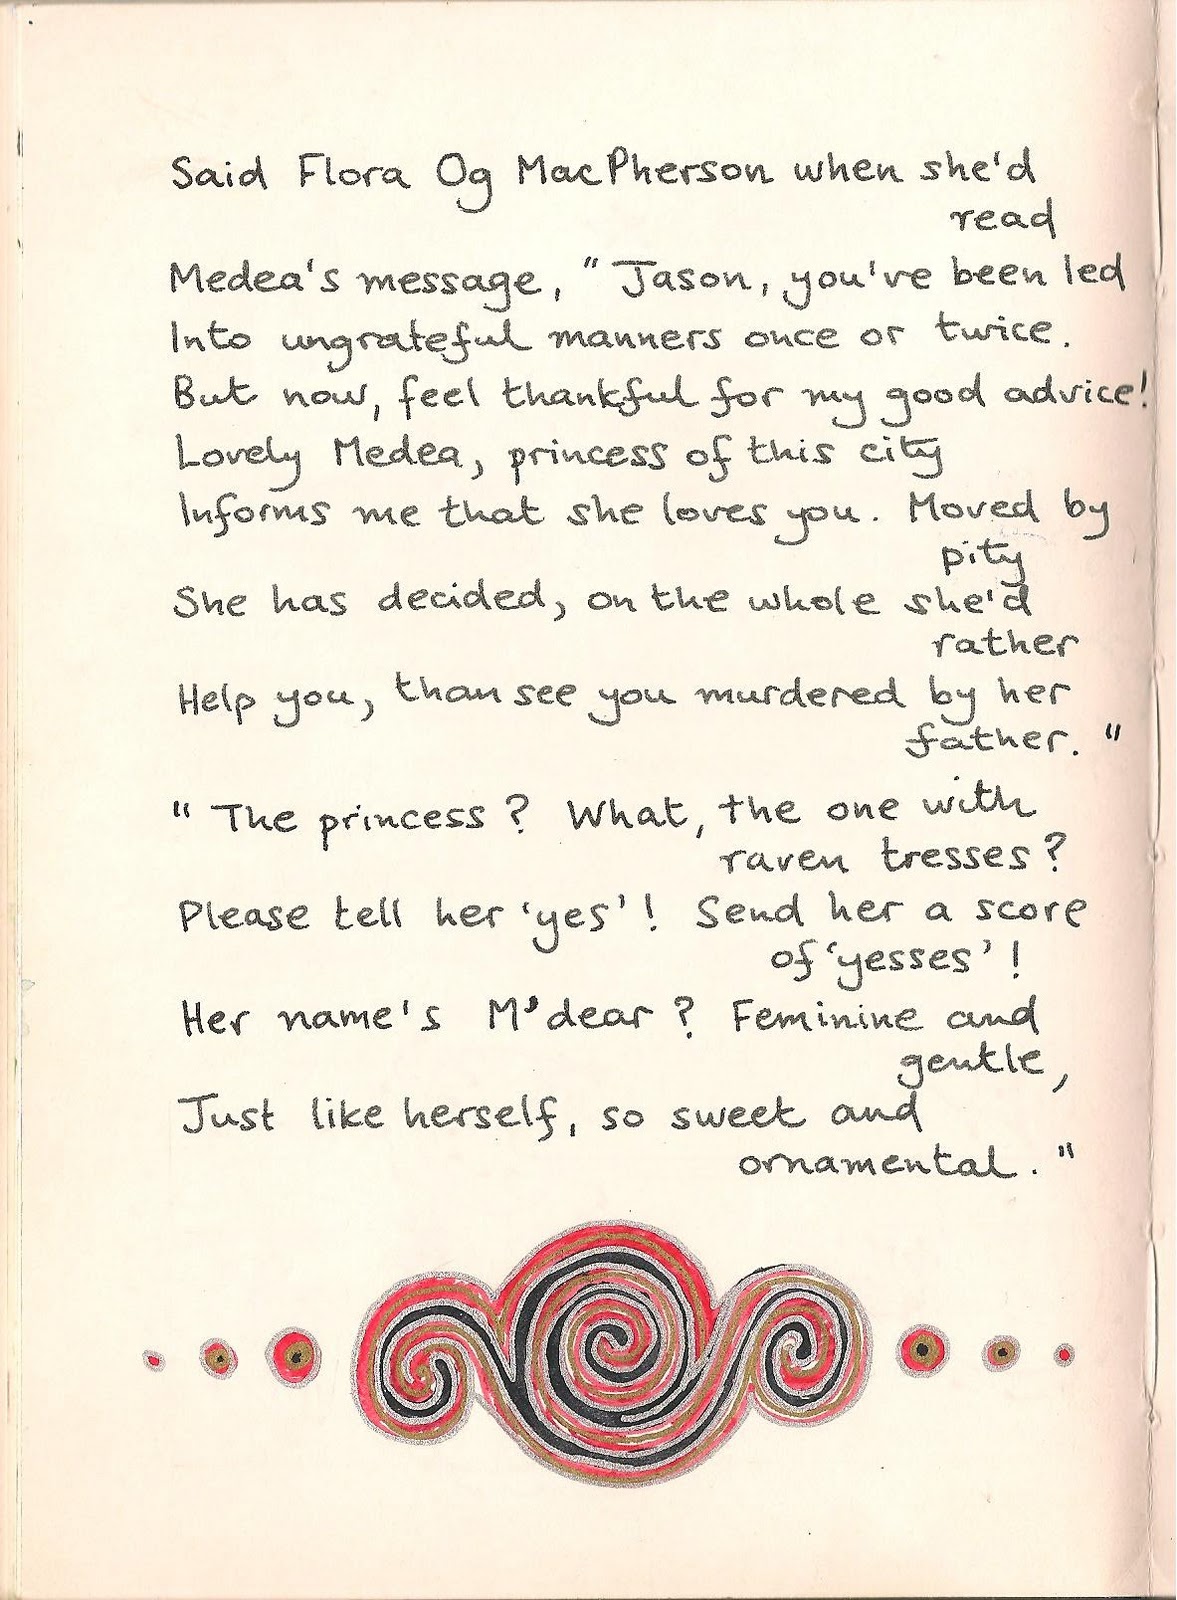 Said Flora Og MacPherson when she'd
read
Medea's message, "Jason, you've been led
Into ungrateful manners once or twice.
But now, feel thankful for my good advice!
Lovely Medea, princess of this city
Informs me that she loves you. Moved by
pity
She has decided, on the whole she'd
rather
Help you, than see you murdered by her
father."
"The princess? What, the one with
raven tresses?
Please tell her 'yes'! Send her a score
of 'yesses'!
Her name's M'dear? Feminine and
gentle,
Just like herself, so sweet and
ornamental."